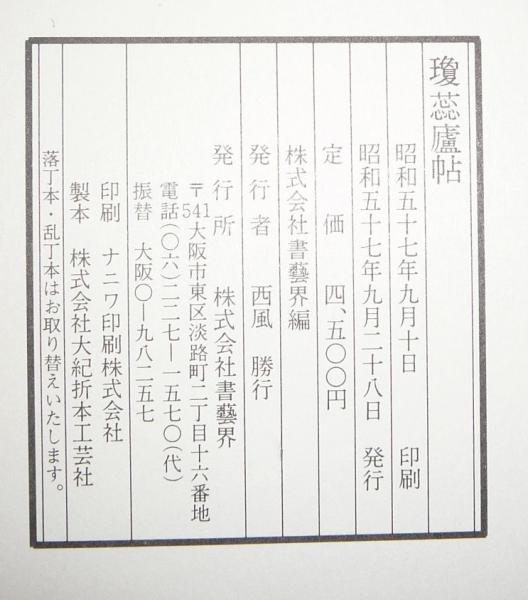 瓊蕊廬帖
昭和五十七年九月十日 印刷
昭和五十七年九月二十八日 発行
定価 四、五〇〇円
株式会社書藝界編
発行者 西風勝行
発行所 株式会社書藝界
〒541大阪市東区淡路町二丁目十六番地
電話(〇六)二二七ー一五七〇(代)
振替 大阪〇ー九八二五七
印刷 ナニワ印刷株式会社
製本 株式会社大紀折本工芸社
落丁本・乱丁本はお取り替えいたします。